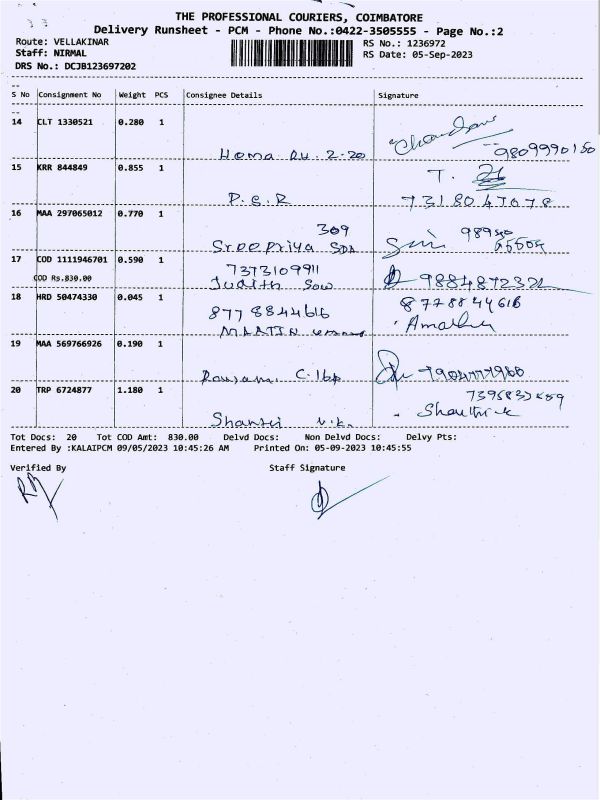 THE PROFESSIONAL COURIERS, COIMBATORE
Delivery Runsheet - PCM - Phone No.:0422-3505555 - Page No.:2
Route: VELLAKINAR
RS No.: 1236972
Staff: NIRMAL
RS Date: 05-Sep-2023
DRS No.: DCJB123697202
S No Consignment No Weight PCS Consignee Details Signature
14 CLT 1330521 0.280 1
Homa 2-20
9809990150
15 KRR 844849 0.855 1
T.
P.S.R 7318047078
16 MAA 297065012 0.770 1
309 98940
Sreepriya 65504
17 COD 1111946701 0.590 1
7373109911
COD Rs.830.00
Judith Sow
18 HRD 50474330 0.045 1
8778844616 8778844616
MARTIN
19 MAA 569766926 0.190 1
20 TRP 6724877 1.180 1
Shanti V.K.
Tot Docs: 20 Tot COD Amt: 830.00 Delvd Docs: Non Delvd Docs: Delvy Pts:
Entered By :KALAIPCM 09/05/2023 10:45:26 AM Printed On: 05-09-2023 10:45:55
Verified By Staff Signature